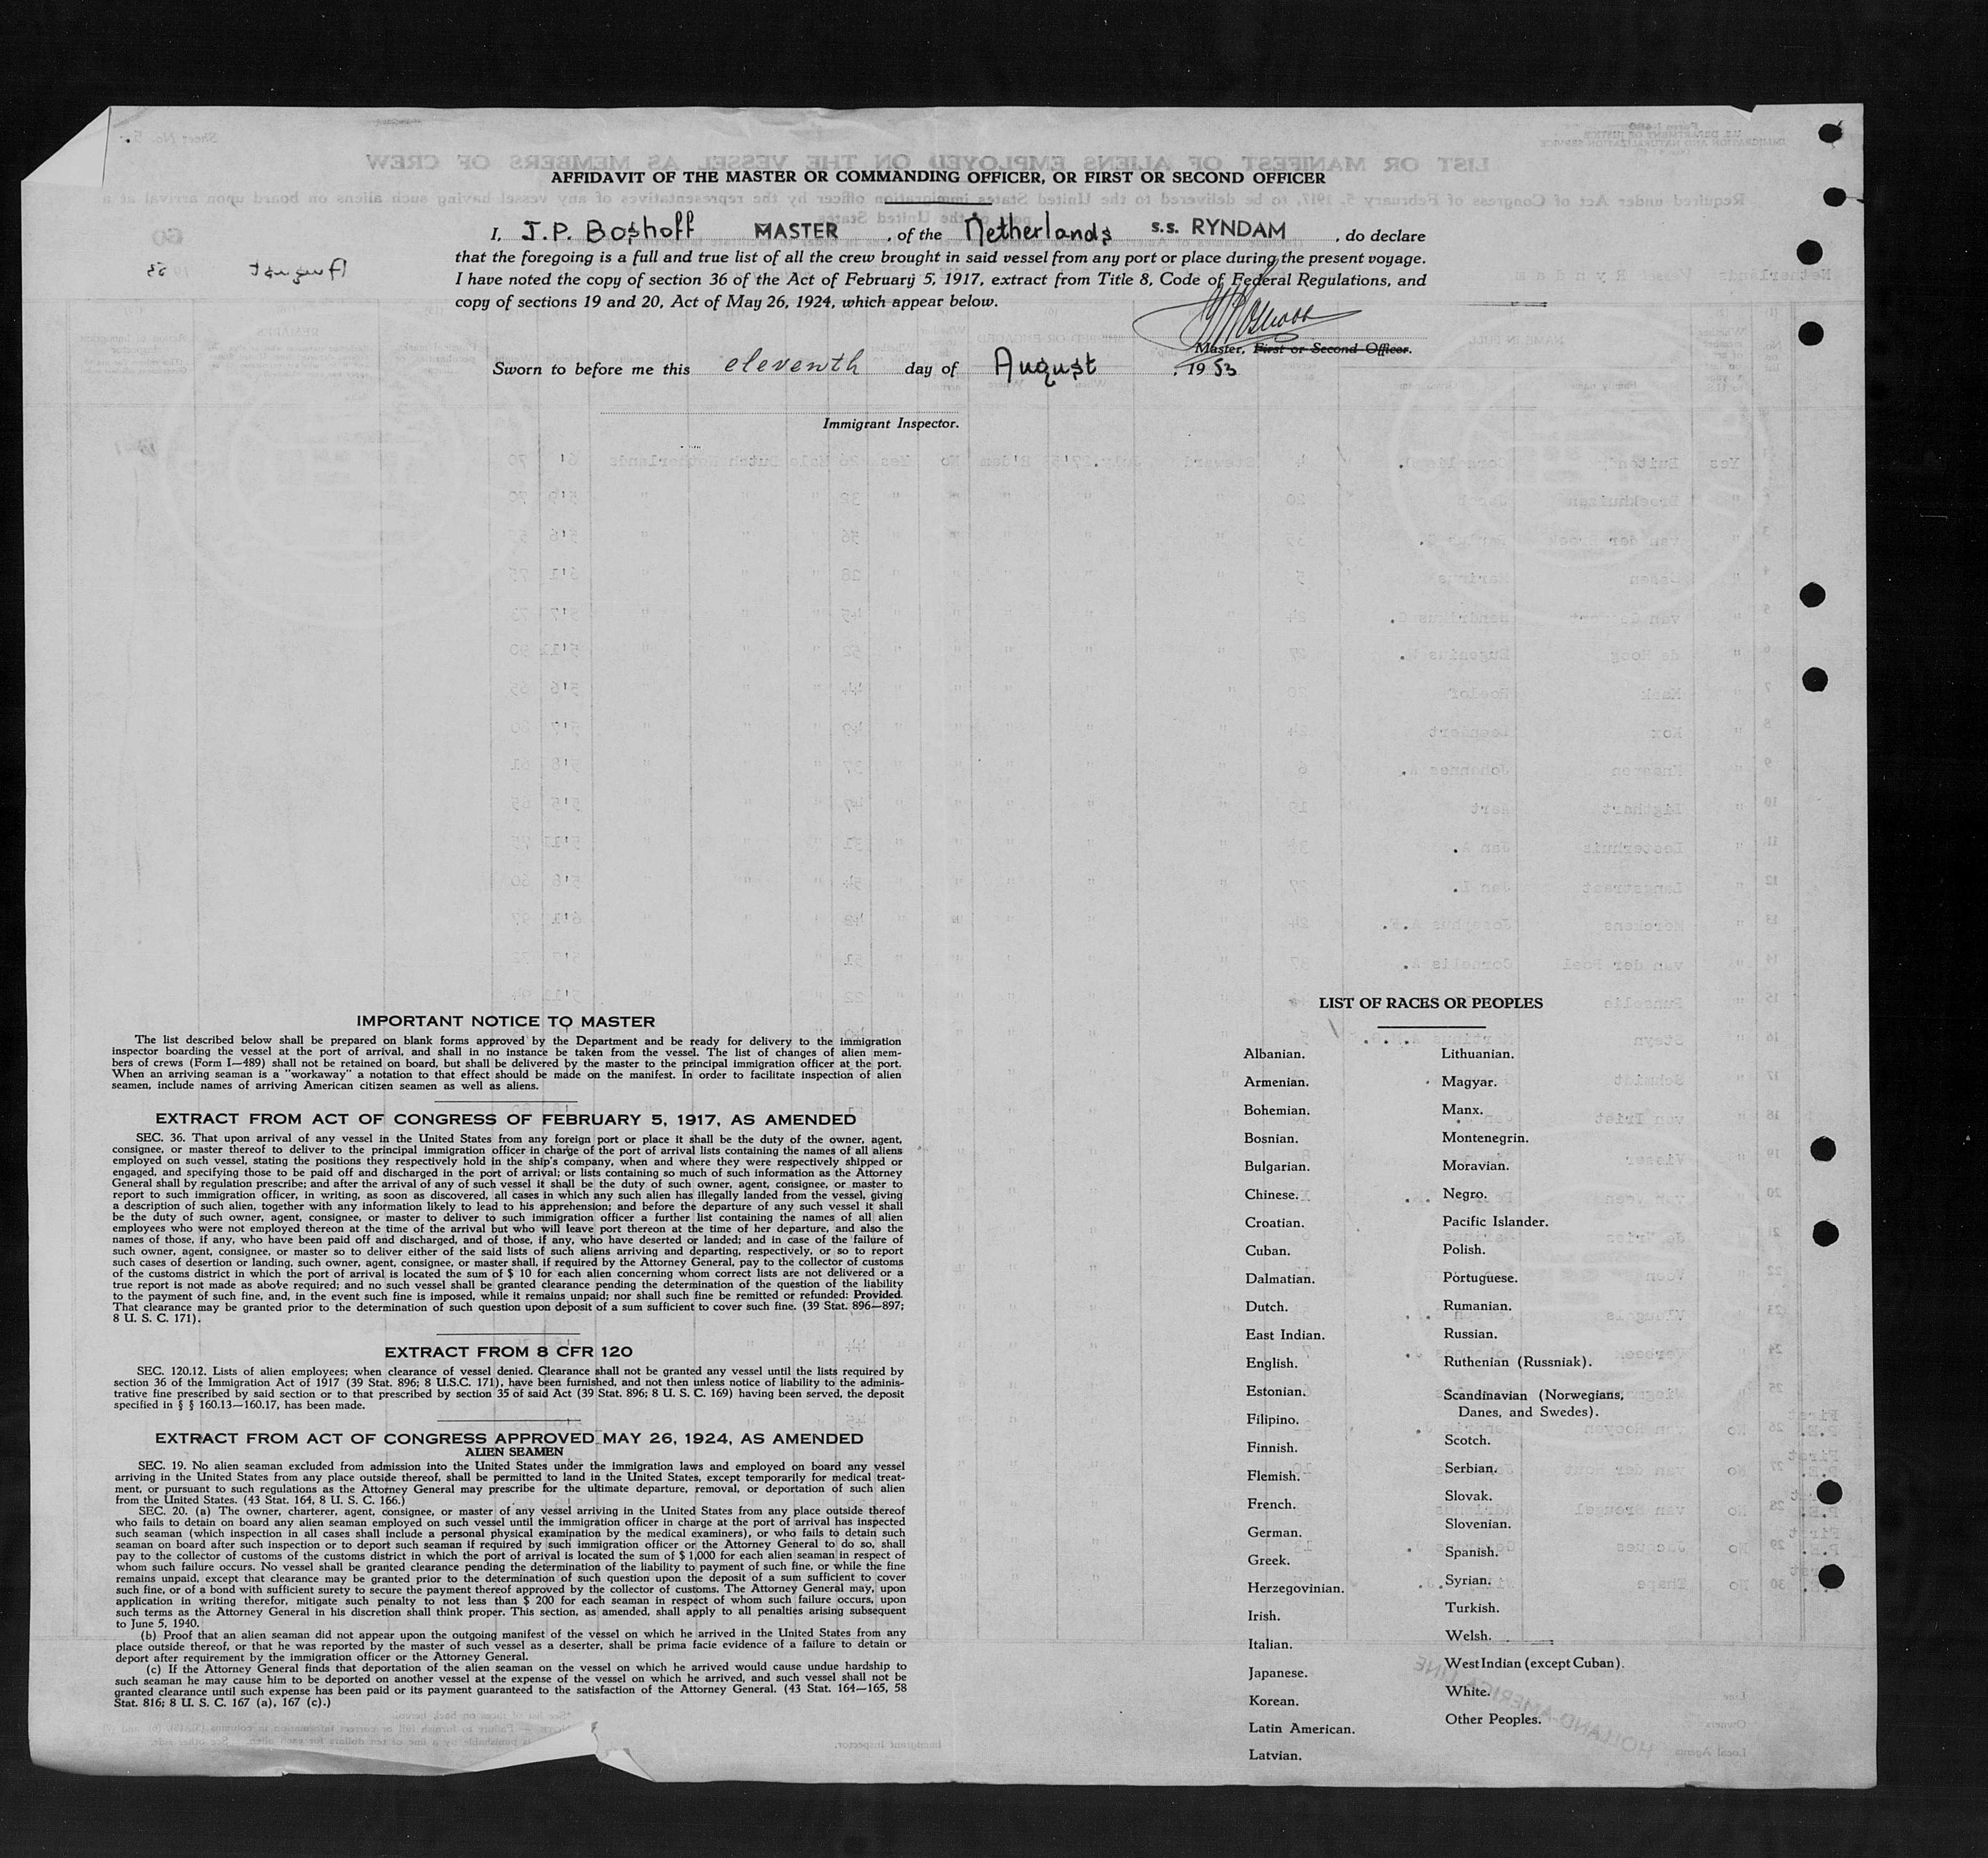 AFFIDAVIT OF THE MASTER OR COMMANDING OFFICER, OR FIRST OR SECOND OFFICER
I, J.P. Boshoff MASTER , of the Netherlands s.s. RYNDAM , do declare
that the foregoing is a full and true list of all the crew brought in said vessel from any port or place during the present voyage.
I have noted the copy of section 36 of the Act of February 5, 1917, extract from Title 8, Code of Federal Regulations, and
copy of sections 19 and 20, Act of May 26, 1924, which appear below.
Master, First or Second Officer.
Sworn to before me this eleventh day of August , 19 53
Immigrant Inspector.
IMPORTANT NOTICE TO MASTER
The list described below shall be prepared on blank forms approved by the Department and be ready for delivery to the immigration
inspector boarding the vessel at the port of arrival, and shall in no instance be taken from the vessel. The list of changes of alien mem-
bers of crews (Form I—489) shall not be retained on board, but shall be delivered by the master to the principal immigration officer at the port.
When an arriving seaman is a "workaway" a notation to that effect should be made on the manifest. In order to facilitate inspection of alien
seamen, include names of arriving American citizen seamen as well as aliens.
EXTRACT FROM ACT OF CONGRESS OF FEBRUARY 5, 1917, AS AMENDED
SEC. 36. That upon arrival of any vessel in the United States from any foreign port or place it shall be the duty of the owner, agent,
consignee, or master thereof to deliver to the principal immigration officer in charge of the port of arrival lists containing the names of all aliens
employed on such vessel, stating the positions they respectively hold in the ship's company, when and where they were respectively shipped or
engaged, and specifying those to be paid off and discharged in the port of arrival; or lists containing so much of such information as the Attorney
General shall by regulation prescribe; and after the arrival of any of such vessel it shall be the duty of such owner, agent, consignee, or master to
report to such immigration officer, in writing, as soon as discovered, all cases in which any such alien has illegally landed from the vessel, giving
a description of such alien, together with any information likely to lead to his apprehension; and before the departure of any such vessel it shall
be the duty of such owner, agent, consignee, or master to deliver to such immigration officer a further list containing the names of all alien
employees who were not employed thereon at the time of the arrival but who will leave port thereon at the time of her departure, and also the
names of those, if any, who have been paid off and discharged, and of those, if any, who have deserted or landed; and in case of the failure of
such owner, agent, consignee, or master so to deliver either of the said lists of such aliens arriving and departing, respectively, or so to report
such cases of desertion or landing, such owner, agent, consignee, or master shall, if required by the Attorney General, pay to the collector of customs
of the customs district in which the port of arrival is located the sum of $ 10 for each alien concerning whom correct lists are not delivered or a
true report is not made as above required; and no such vessel shall be granted clearance pending the determination of the question of the liability
to the payment of such fine, and, in the event such fine is imposed, while it remains unpaid; nor shall such fine be remitted or refunded: Provided.
That clearance may be granted prior to the determination of such question upon deposit of a sum sufficient to cover such fine. (39 Stat. 896—897;
8 U. S. C. 171).
EXTRACT FROM 8 CFR 120
SEC. 120.12. Lists of alien employees; when clearance of vessel denied. Clearance shall not be granted any vessel until the lists required by
section 36 of the Immigration Act of 1917 (39 Stat. 896; 8 U.S.C. 171), have been furnished, and not then unless notice of liability to the adminis-
trative fine prescribed by said section or to that prescribed by section 35 of said Act (39 Stat. 896; 8 U. S. C. 169) having been served, the deposit
specified in § § 160.13—160.17, has been made.
EXTRACT FROM ACT OF CONGRESS APPROVED MAY 26, 1924, AS AMENDED
ALIEN SEAMEN
SEC. 19. No alien seaman excluded from admission into the United States under the immigration laws and employed on board any vessel
arriving in the United States from any place outside thereof, shall be permitted to land in the United States, except temporarily for medical treat-
ment, or pursuant to such regulations as the Attorney General may prescribe for the ultimate departure, removal, or deportation of such alien
from the United States. (43 Stat. 164, 8 U. S. C. 166.)
SEC. 20. (a) The owner, charterer, agent, consignee, or master of any vessel arriving in the United States from any place outside thereof
who fails to detain on board any alien seaman employed on such vessel until the immigration officer in charge at the port of arrival has inspected
such seaman (which inspection in all cases shall include a personal physical examination by the medical examiners), or who fails to detain such
seaman on board after such inspection or to deport such seaman if required by such immigration officer or the Attorney General to do so, shall
pay to the collector of customs of the customs district in which the port of arrival is located the sum of $ 1,000 for each alien seaman in respect of
whom such failure occurs. No vessel shall be granted clearance pending the determination of the liability to payment of such fine, or while the fine
remains unpaid, except that clearance may be granted prior to the determination of such question upon the deposit of a sum sufficient to cover
such fine, or of a bond with sufficient surety to secure the payment thereof approved by the collector of customs. The Attorney General may, upon
application in writing therefor, mitigate such penalty to not less than $ 200 for each seaman in respect of whom such failure occurs, upon
such terms as the Attorney General in his discretion shall think proper. This section, as amended, shall apply to all penalties arising subsequent
to June 5, 1940.
(b) Proof that an alien seaman did not appear upon the outgoing manifest of the vessel on which he arrived in the United States from any
place outside thereof, or that he was reported by the master of such vessel as a deserter, shall be prima facie evidence of a failure to detain or
deport after requirement by the immigration officer or the Attorney General.
(c) If the Attorney General finds that deportation of the alien seaman on the vessel on which he arrived would cause undue hardship to
such seaman he may cause him to be deported on another vessel at the expense of the vessel on which he arrived, and such vessel shall not be
granted clearance until such expense has been paid or its payment guaranteed to the satisfaction of the Attorney General. (43 Stat. 164—165, 58
Stat. 816; 8 U. S. C. 167 (a), 167 (c).)
LIST OF RACES OR PEOPLES
Albanian.
Armenian.
Bohemian.
Bosnian.
Bulgarian.
Chinese.
Croatian.
Cuban.
Dalmatian.
Dutch.
East Indian.
English.
Estonian.
Filipino.
Finnish.
Flemish.
French.
German.
Greek.
Herzegovinian.
Irish.
Italian.
Japanese.
Korean.
Latin American.
Latvian.
Lithuanian.
Magyar.
Manx.
Montenegrin.
Moravian.
Negro.
Pacific Islander.
Polish.
Portuguese.
Rumanian.
Russian.
Ruthenian (Russniak).
Scandinavian (Norwegians,
Danes, and Swedes).
Scotch.
Serbian.
Slovak.
Slovenian.
Spanish.
Syrian.
Turkish.
Welsh.
West Indian (except Cuban).
White.
Other Peoples.